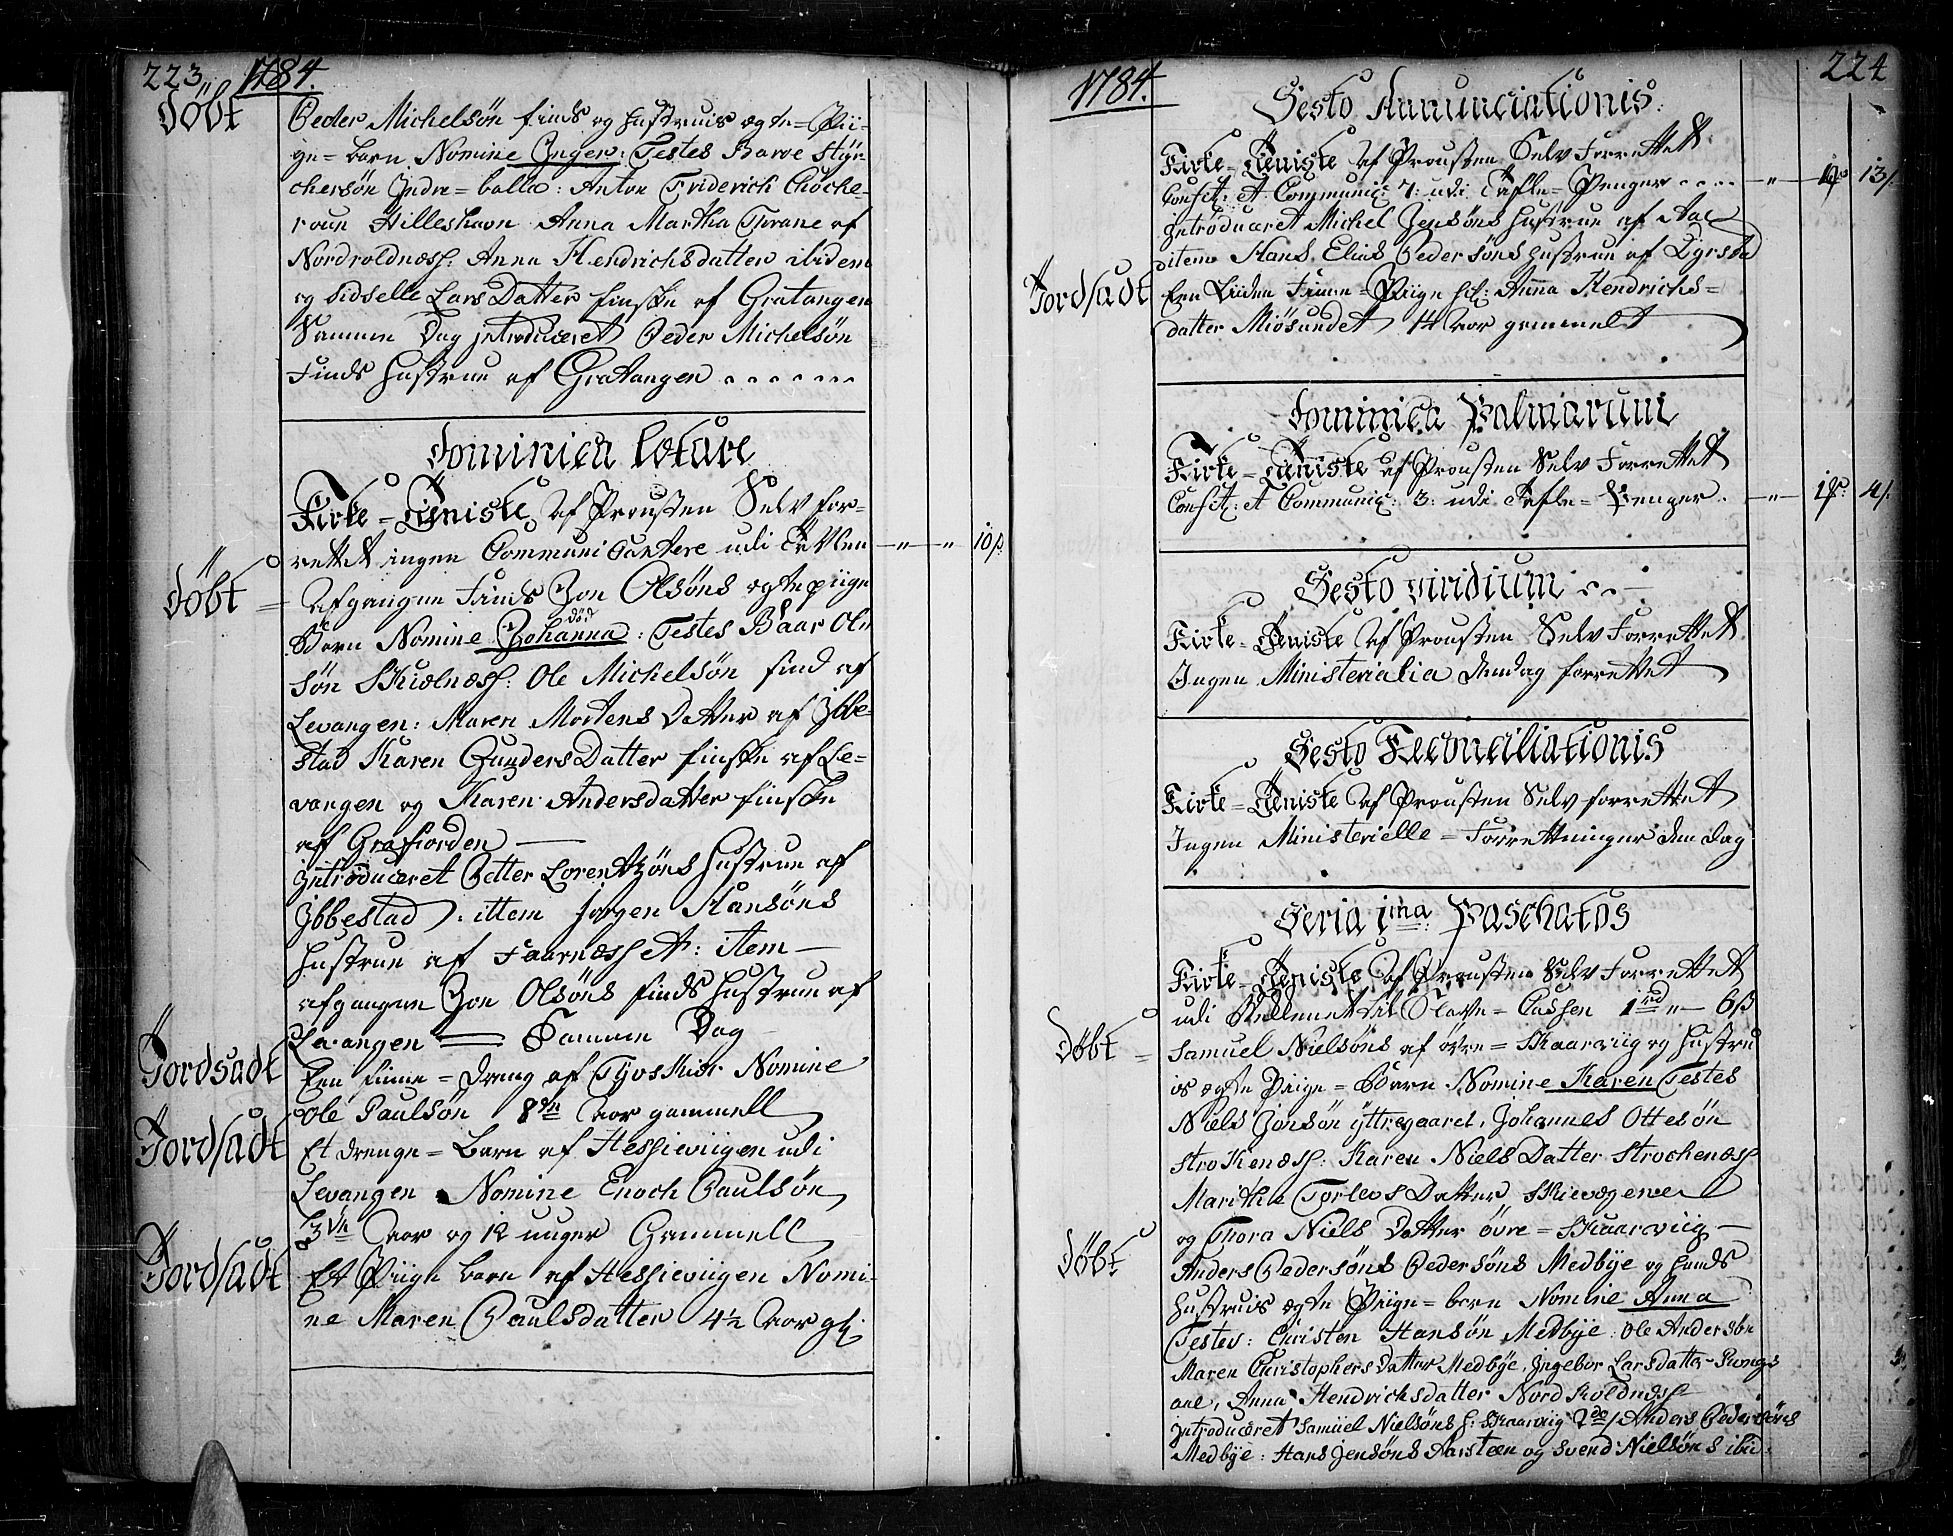 223. 1784.
Döbt
Peder Michelsön finds og Hustruis ægte=Pii-
ge=barn Nomine Inger: Testes Baroe Styr-
chersön Indre=balla: Anton Friderich
Hilleshavn Anna Martha Thrane af
Nordroldnæss: Anna Hendrichsdatter ibidem
og Sidselle Lars Datter finske af Gratangen
Samme Dag jntroduceret Peder Michelsön
Finds Hustrue af Gratangen . . . . . . .
Dominica Lætare
Kirke=Tieniste af Prousten Selv for-
rettet ingen Communicantere udi Tavlen — " — " 10 ß
Döbt = afgangne Finds Jon Olsöns ægte piige
död
Barn Nomine Johanna: Testes Baar Ol-
sön Skielnæss: Ole Michelsön find af
Levangen: Maren Mortens Datter af Ibbe-
stad Karen Gunders Datter finske af Le=
vangen og Karen Andersdatter finske
af Grafiorden —
Introduceret Petter Lorentzöns Hustrue af
Ibbestad, ittem Jörgen Hansöns
Hustrue af Faarnæsset: item —
afgangne Jon Olsöns finds Hustrue af
Levangen = Samme Dag
Jordsadt
Een finne=dreng af Nomine
Ole Paulsön 8te Aar gammell
Jordsadt
Et drenge=Barn af Hessieviigen udi
Levangen Nomine Enoch Paulsön
3 Aar og 12 uuger Gammell
Jordsadt
Et Piige barn af Hessieviigen Nomi-
ne Maren Paulsdatter 4½ Aar gl:
1784. 224
Festo Annunciationis.
Kirke=Tieniste af Prousten Selv Forrettet
Confit: et Communic: 7: udi Tafle=Penger . . . . — " — 13 ß
jntroduceret Michel Jensöns Hustrue af Aae
item Hans Elias Pedersöns Hustrue af
Jordsadt
Een Liiden Finne=Piige hl: Anna Hendrichs=
datter Miösundet 14 Aar gammelt
Dominica Palmarum
Kirke=Tieniste af Prousten Selv Forrettet
Confit: et Communic: 3: udi Tafle=Penger. — " — 4 ß
Festo viridium
Kirke=Tieniste af Prousten Selv Forrettet
Ingen Ministerialia den dag forrettet
Festo Reconciliationis
Kirke=Tieniste af Prousten Selv forrettet
Ingen Ministerielle=Forrettninger den Dag
Feria 1ma Paschatos
Kirke=Tieniste af Prousten Selv Forrettet
udi til Slave=Cassen 1 " — 6 ß
Döbt =
Samuel Nielsöns af övre=Skaarviig og Hustru
is ægte Piige=Barn Nomine Karen Testes
Niels Jonsön yttregaaret, Johannes Ottesön
Strokenæss: Karen Niels Datter Strochenæss
Marithe Torlevs Datter
og Thora Niels Datter övre=Skaarviig —
Döbt
Anders Pedersöns Pedersöns Medbye og hands
Hustruis ægte Piige=barn Nomine Anna
Testes: Christen Hansön Medbye: Ole Andersön
Maren Christophers Datter Medbye, Ingebor Larsdatter
Anna Hendrichsdatter Nord Roldnæss
jntroduceret Samuel Nielsöns H: Skaarviig 2de / Anders Pedersöns
Medbye: Hans Jensöns Aarsteen og Svend Nielsöns ibid: